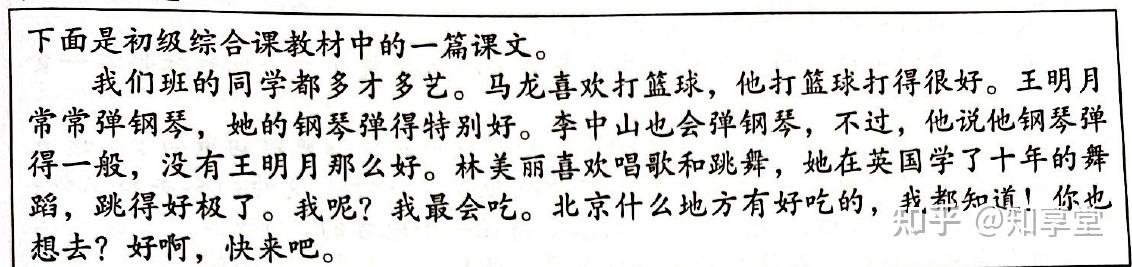 下面是初级综合课教材中的一篇课文。
我们班的同学都多才多艺。马龙喜欢打篮球，他打篮球打得很好。王明月
常常弹钢琴，她的钢琴弹得特别好。李中山也会弹钢琴，不过，他说他钢琴弹
得一般，没有王明月那么好。林美丽喜欢唱歌和跳舞，她在英国学了十年的舞
蹈，跳得好极了。我呢？我最会吃。北京什么地方有好吃的，我都知道！你也
想去？好啊，快来吧。
知乎 @知享堂